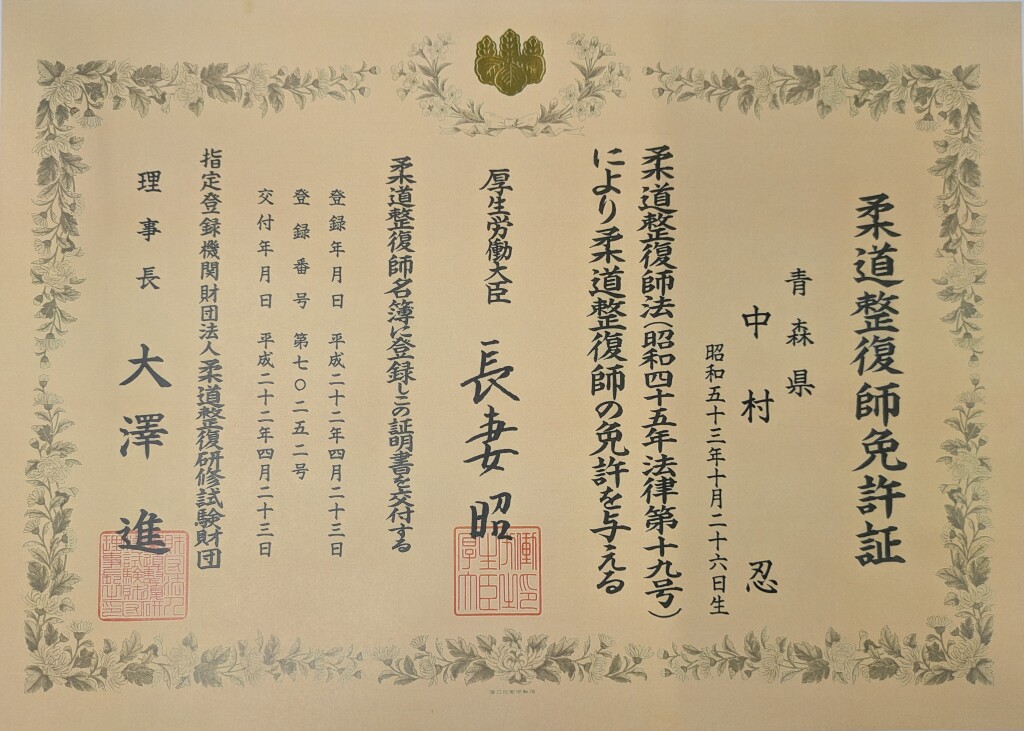 柔道整復師免許証
青森県
中村忍
昭和五十三年十月二十六日生
柔道整復師法(昭和四十五年法律第十九号)
により柔道整復師の免許を与える
厚生労働大臣 長妻昭
柔道整復師名簿に登録しこの証明書を交付する
登録年月日 平成二十二年四月二十三日
登録番号 第七〇二五二号
交付年月日 平成二十二年四月二十三日
指定登録機関財団法人柔道整復研修試験財団
理事長 大澤進